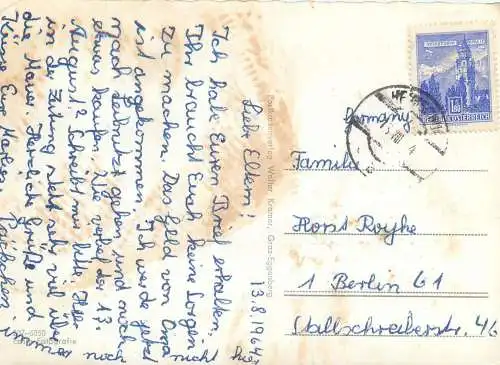 13.8.1964
Liebe Eltern!
Ich habe Euren Brief erhalten.
Ihr braucht Euch keine Sorgen
zu machen. Das Geld von Oma
ist angekommen. Ich werde jetzt
nach Leibnitz gehen und noch
etwas kaufen. Wie verlief der 13.
August? Schreibt mir bitte. Hier
in der Zeitung steht sehr viel über
die Mauer. Herzliche Grüße und
Küsse Eure Marlies.
Päckchen immer noch
nicht hier
Postkartenverlag Walter Kramer, Graz-Eggenberg
Germany
Familie
Horst Royke
1 Berlin 61
Stallschreiberstr. 46
1.50
REPUBLIK ÖSTERREICH